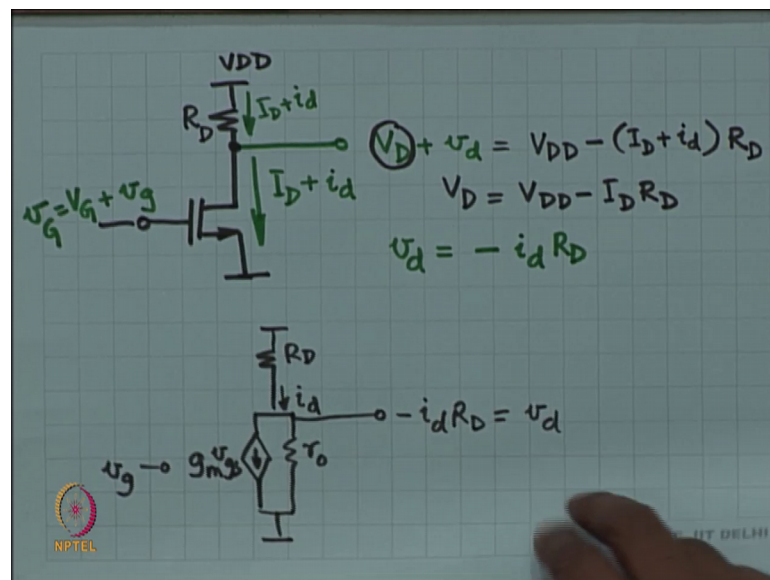 VDD
R_D I_D + i_d
V_D + v_d = V_DD - (I_D + i_d) R_D
I_D + i_d
V_D = V_DD - I_D R_D
v_G = V_G + v_g
v_d = - i_d R_D
R_D
i_d
- i_d R_D = v_d
v_g g_m v_gs r_o
NPTEL
IIT DELHI